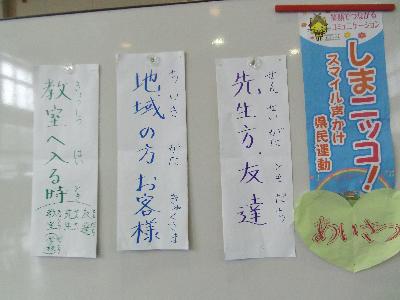 笑顔でつながる
コミュニケーション
しまニッコ!
スマイル声かけ
県民運動
あいさつ
せんせいがた ともだち
先生方、友達
ちいき かた きゃくさま
地域の方 お客様
きょうしつ はい とき
教室へ入る時
友達
先生